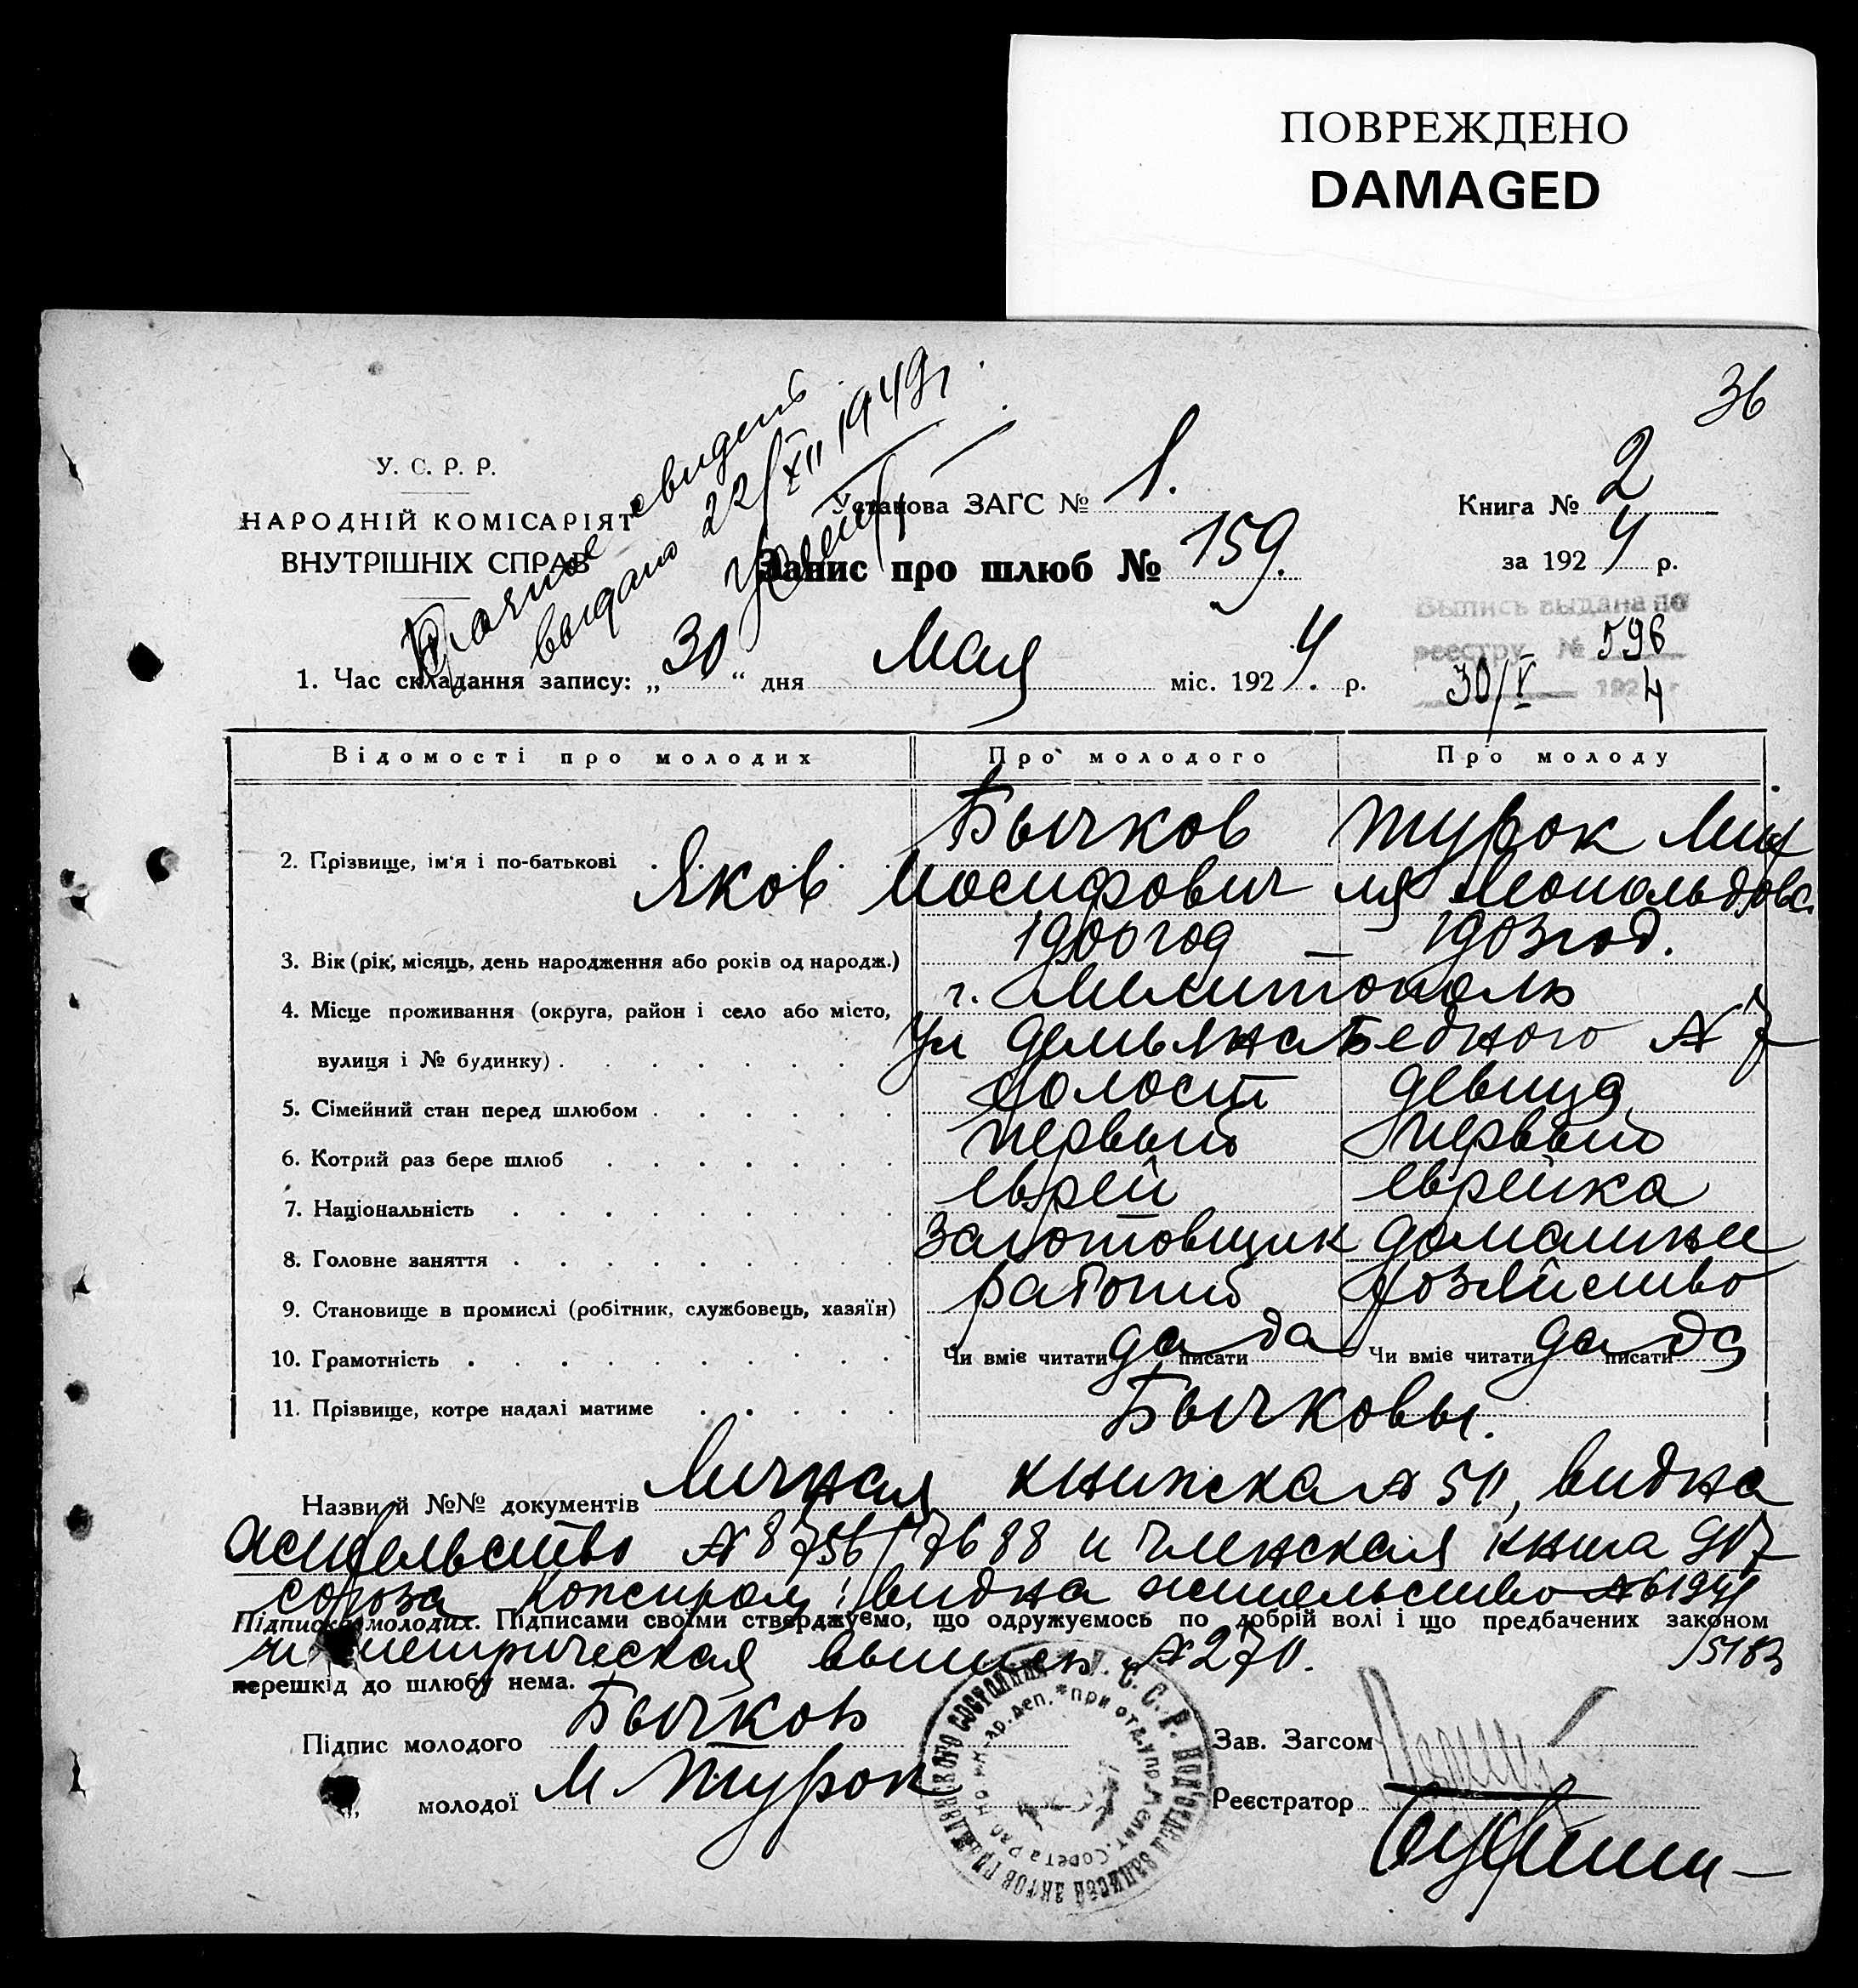 ПОВРЕЖДЕНО
DAMAGED
36
У. С. Р. Р.
НАРОДНІЙ КОМІСАРІЯТ
ВНУТРІШНІХ СПРАВ
свидет
выдано 22/XII 1949 г.
Установа ЗАГС № 1.
Книга № 2
за 1924 р.
Запис про шлюб № 159.
Выпись выдана по
реестру № 596
30/V 1924 г.
1. Час складання запису: „30“ дня Мая міс. 1924. р.
Відомості про молодих Про молодого Про молоду
2. Прізвище, ім'я і по-батькові
Бычков Турок Ми
Яков Иосифович ля Леопольдовс.
3. Вік (рік, місяць, день народження або років од народж.) 1900 год – 1903 год.
4. Місце проживання (округа, район і село або місто, г. Мелитополь
вулиця і № будинку) Ул Демьяна Бедного № 7
5. Сімейний стан перед шлюбом холост девица
6. Котрий раз бере шлюб первый первый
7. Національність еврей еврейка
8. Головне заняття заготовщик домашнее
9. Становище в промислі (робітник, службовець, хазяїн) рабочий хозяйство
10. Грамотність Чи вміє читати да писати да Чи вміє читати да писати да
11. Прізвище, котре надалі матиме Бычковы.
Назви й №№ документів Личная книжка № 50, вид на
жительство № 8756/7688 и членская книга 907
союза Кожсироm; вид на жительство № 6194/
5183
Підписка молодих. Підписами своїми стверджуємо, що одружуємось по добрій волі і що предбачених законом
и метрическая выпись № 270.
перешкід до шлюбу нема.
Підпис молодого Бычков
„ молодої М Турок
Зав. Загсом
Реєстратор